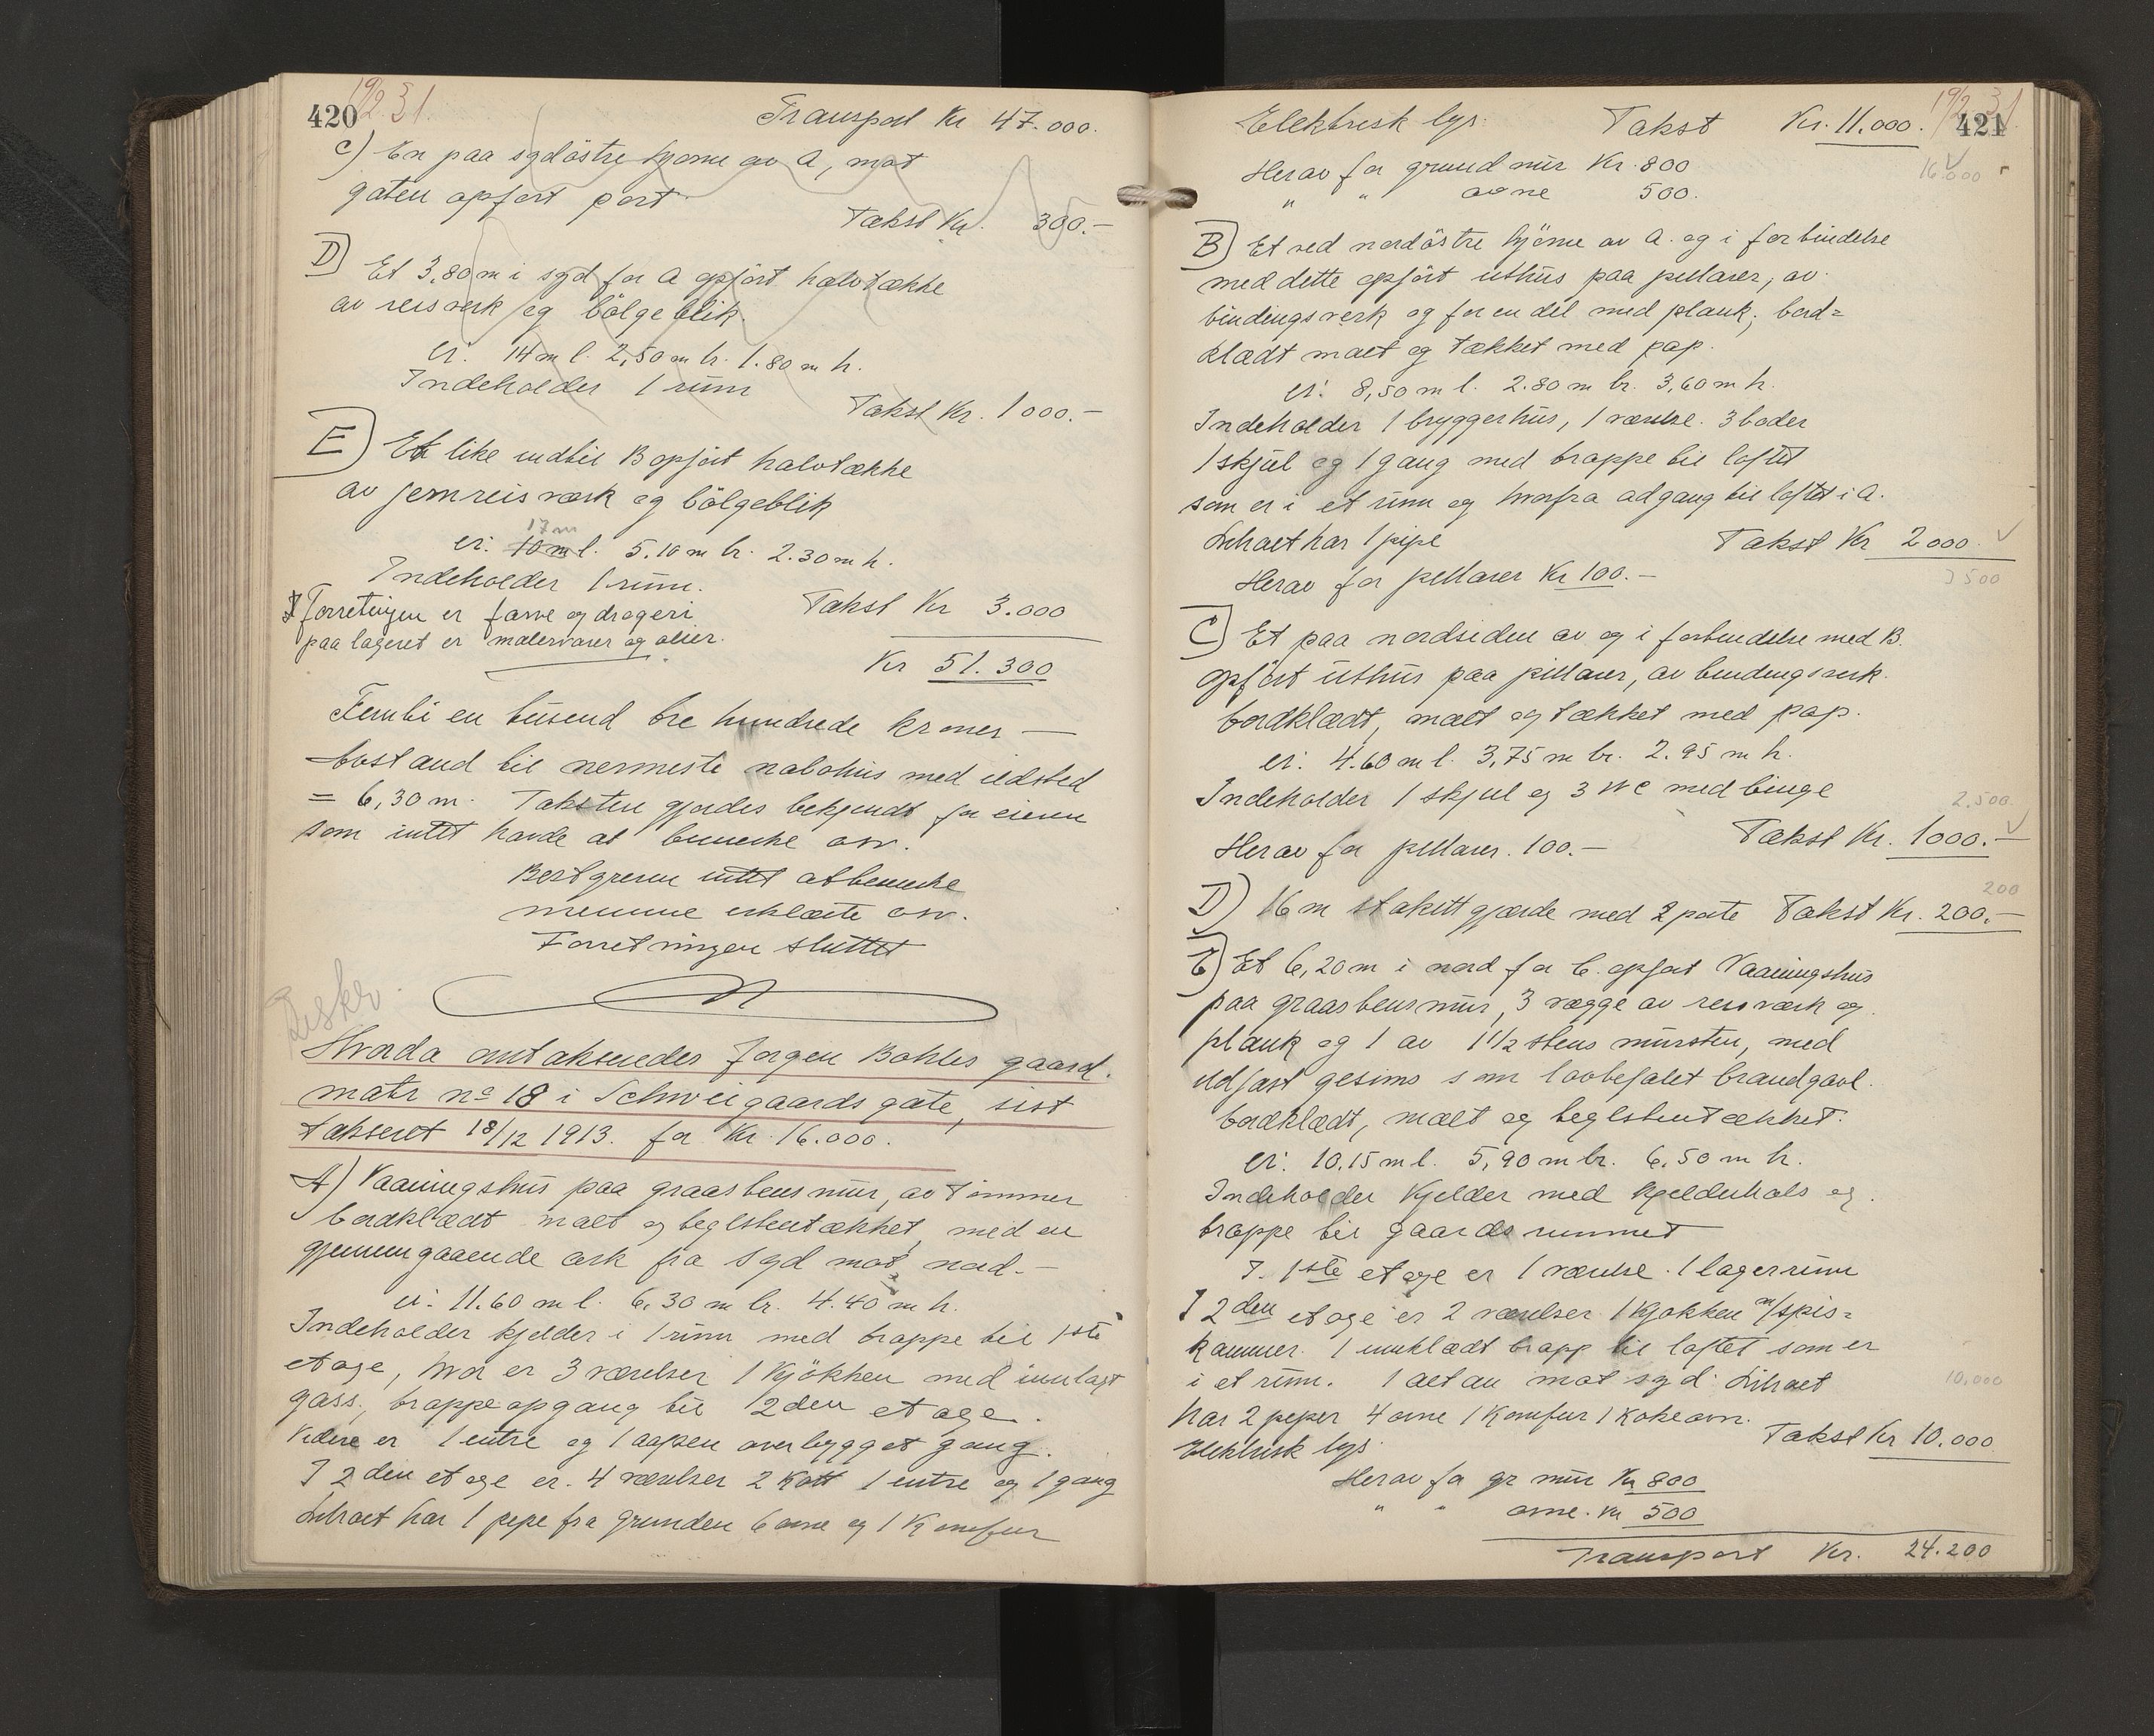 420
19/2 31.
Transport Kr 47.000.
C) En paa sydöstre hjörne av A, mot
gaten opfört port
Takst Kr. 300.-
D) Et 3,80 m i syd for A opfört halvtække
av reisverk og bölgeblik.
er: 14 m l. 2,50 m br. 1.80 m h.
Indeholder 1 rum
Takst Kr. 1000.-
E) Et like indtil B opfört halvtække
av jernreisværk og bölgeblik
17 m
er: 10 m l. 5.10 m br. 2.30 m h.
Indeholder 1 rum.
Forretningen er farve og drogeri
Takst Kr 3.000
paa lageret er malervarer og oljer.
Kr 51.300
Femti en tusend tre hundrede kroner —
Avstand til nermeste nabohus med ildsted
= 6,30 m. Taksten gjordes bekjendt for eieren
som intet havde at bemerke osv.
Bestyreren intet at bemerke
mennene erklærte osv.
Forretningen sluttet
Beskr.
Hvorda omtaksendes Jörgen Bohles gaard.
matr no 18 i Schweigaards gate, sist
takseret 18/12 1913. for Kr. 16.000.
A) Vaaningshus paa graastens mur, av tömmer
bordklædt malt og teglstentækket, med en
gjennemgaaende ark fra syd mot nord.-
er: 11.60 m l. 6.30 m br. 4.40 m h.
Indeholder kjelder i 1 rum med trappe til 1ste
etage, hvor er 3 værelser 1 Kjökken med innlagt
gass., trappeopgang til 2den etage.
Videre er 1 entre og 1 aapen overbygget gang.
I 2den etage er. 4 værelser 2 Kott 1 entre og 1 gang
Lokalet har 1 pipe fra grunden 6 ovne og 1 Komfur
421
19/2 31
Elektrisk lys. Takst Kr. 11.000.
16.000
Herav for grund mur Kr. 800
" " ovne 500.
B) Et ved nordöstre hjörne av A. og i forbindelse
med dette opfört uthus paa pillarer, av
bindingsverk og for en del med plank; bord=
klædt malt og tækket med pap.
er: 8,50 m l. 2.80 m br. 3,60 m h.
Indeholder 1 bryggerhus, 1 værelse. 3 boder
1 skjul og 1 gang med trappe til loftet
som er i et rum og hvorfra adgang til loftet i A.
Lokalet har 1 pipe Takst Kr 2000.
Herav for pillarer Kr 100.-
3500
C) Et paa nordsiden av og i forbindelse med B.
opfört uthus paa pillarer, av bindingsverk.
bordklædt, malt og tækket med pap.
er: 4.60 m l. 3,75 m br. 2.95 m h.
Indeholder 1 skjul og 3 WC med binge
2.500.
Takst Kr. 1000.-
Herav for pillarer. 100.-
200
D) 16 m stakittgjærde med 2 porte Takst Kr. 200.-
E) Et 6,20 m i nord for C. opfört Vaaningshus
paa graastensmur, 3 vægge av reisværk og
plank og 1 av 1 1/2 stens mursten, med
ildfast gesims som lovbefalet brandgavl.
bordklædt, malt og teglstentækket.
er: 10.15 m l. 5,90 m br. 6.50 m h.
Indeholder Kjelder med kjelderhals og
trappe til gaardsrummet
I. 1ste etage er 1 værelse. 1 lagerrum
I 2den etage er 2 værelser 1 Kjökken m/spis=
kammer. 1 innklædt trapp til loftet som er
i et rum. 1 altan mot syd. Lokalet
10.000
har 2 piper 4 ovne 1 Komfur 1 Kokeovn.
Elektrisk lys. Takst Kr 10.000
Herav for gr mur Kr 800
" " ovne. Kr 500
Transport Kr. 24.200